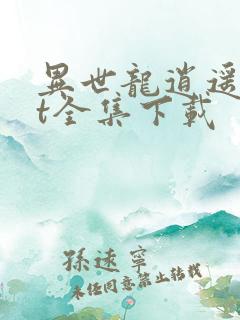 異世龍逍遥
t全集下載
孫遠寧
未经同意禁止转载